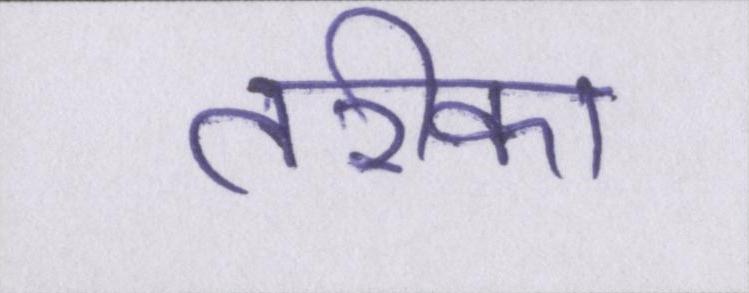 तरीका